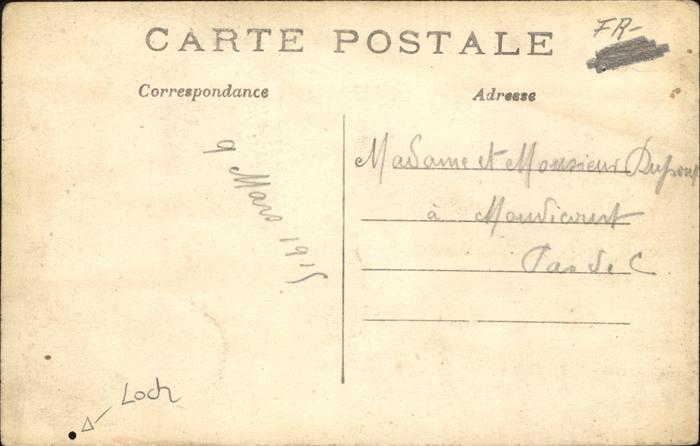 CARTE POSTALE
FR-
Correspondance
Adresse
9 Mars 1915
Madame et Monsieur Dupont
à Mondicourt
Pas de C
Loch